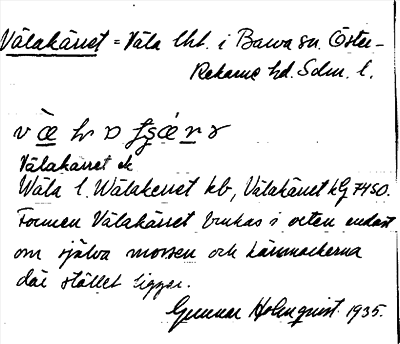 Välakärret = Väla lht. i Barva sn. Öster-
Rekarne hd. Södm. l.
Välakärret ek
Wäla l. Wälakerret kb, Välakärret kG 7450.
Formen Välakärret brukas i orten endast
om själva mossen och kärrmarkerna
där stället ligger.
Gunnar Holmquist. 1935.